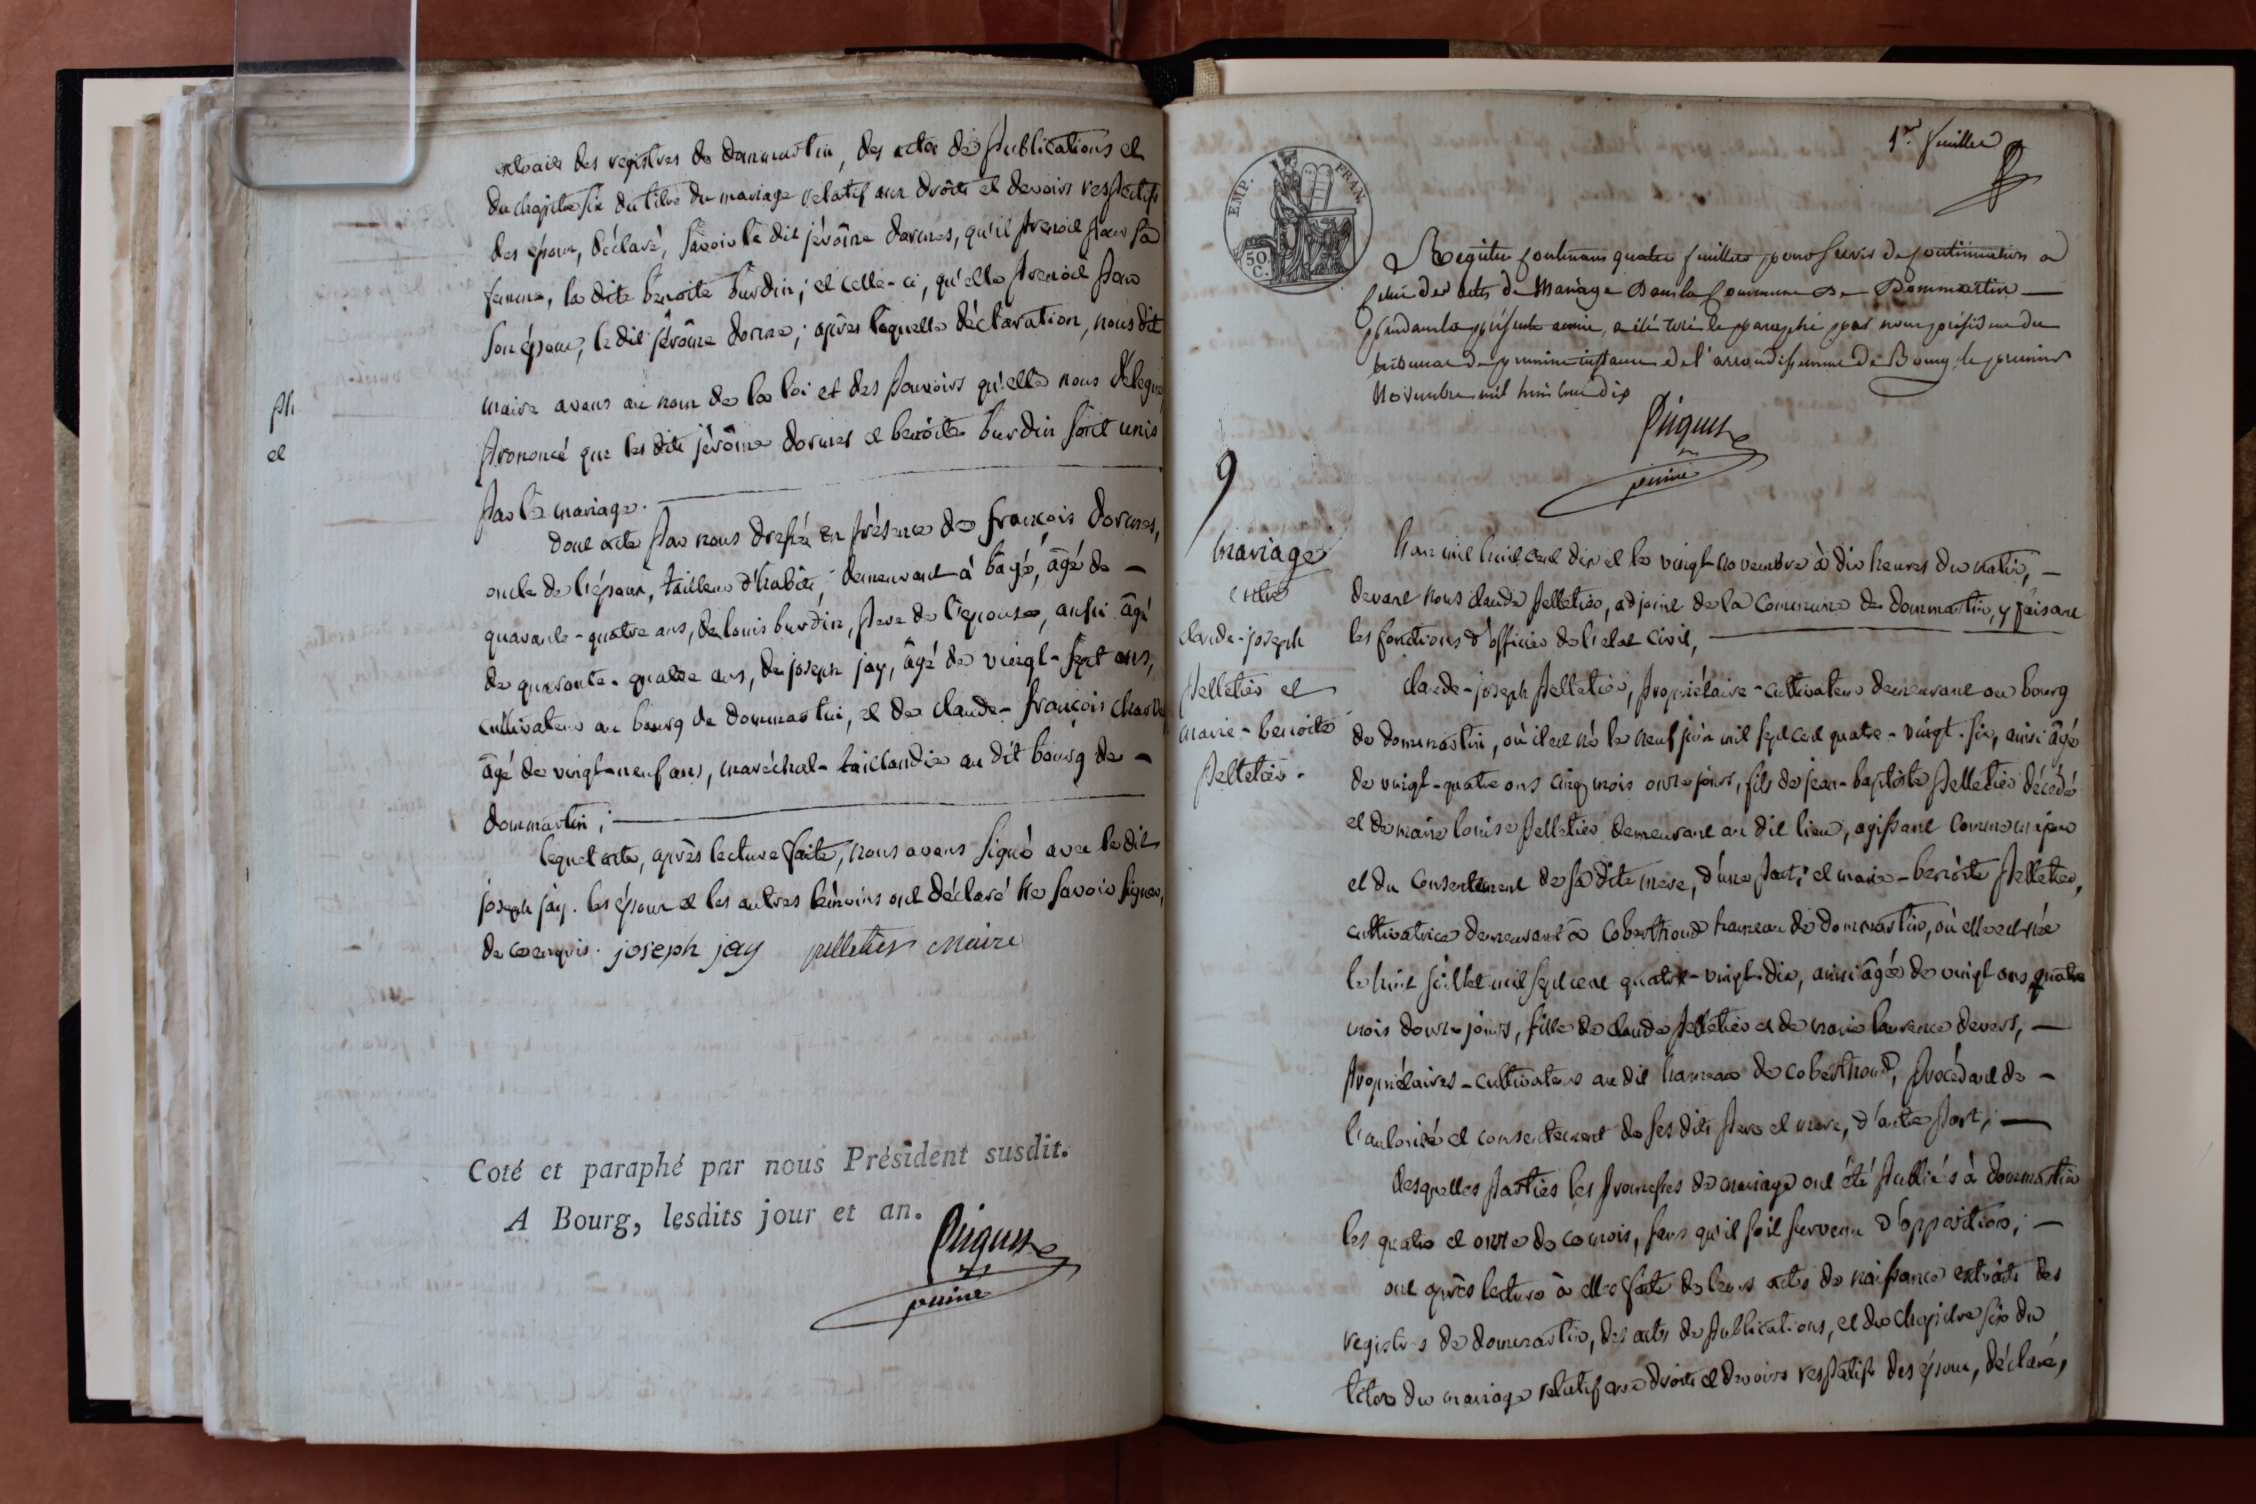 extraits des registres de dommartin, des actes de publications et
du chapitre six du titre du mariage relatif aux droits et devoirs respectifs
des époux, déclaré, savoir le dit jérôme dormes, qu'il prenoit pour sa
femme, la dite benoite burdin; et celle-ci, qu'elle prenoit pour
son époux, le dit jérôme dormes; après laquelle déclaration, nous dit
maire avons au nom de la loi et des pouvoirs qu'elle nous delegue
prononcé que les dits jérôme dormes et benoite burdin sont unis
par le mariage.
dont acte par nous dressé en présence de françois dormes,
oncle de l'époux, tailleur d'habits, demeurant à bagé, âgé de
quarante-quatre ans, de louis burdin, pere de l'epouse, aussi âgé
de quarante-quatre ans, de joseph jay, âgé de vingt-sept ans,
cultivateur au bourg de dommartin, et de claude-françois
âgé de vingt-neuf ans, maréchal-taillandier au dit bourg de
dommartin;
lequel acte, après lecture faite, nous avons signé avec le dit
joseph jay. les époux et les autres témoins ont déclaré ne savoir signer,
de ce enquis. joseph jay pelletier maire
Coté et paraphé par nous Président susdit.
A Bourg, lesdits jour et an.
ph
et
1er feuillet
EMP. FRAN.
50 C.
Registre contenant quatre feuillets pour servir de continuation à
celui des actes de Mariage dans la Commune de Dommartin
pendant la présente année, a été coté & paraphé par nous président du
tribunal de premiere instance de l'arrondissement de Bourg le premier
Novembre mil huit cent dix
9
mariage
entre
claude-joseph
pelletier et
marie-benoite
pelletier.
l'an mil huit cent dix et le vingt novembre à dix heures du matin,
devant nous claude pelletier, adjoint de la commune de dommartin, y faisant
les fonctions d'officier de l'etat civil,
claude-joseph pelletier, propriétaire-cultivateur demeurant au bourg
de dommartin, où il est né le neuf juin mil sept cent quatre-vingt-six, ainsi âgé
de vingt-quatre ans cinq mois onze jours, fils de jean-baptiste pelletier décédé
et de marie louise pelletier demeurant au dit lieu, agissant comme majeur
et du consentement de sa dite mere, d'une part; et marie-benoite pelletier,
cultivatrice demeurant à coberthoud hameau de dommartin, où elle est née
le huit juillet mil sept cent quatre-vingt-dix, ainsi âgée de vingt ans quatre
mois douze jours, fille de claude pelletier et de marie laurence devers,
propriétaires-cultivateurs au dit hameau de coberthoud, procédant de
l'autorité et consentement de ses dits pere et mere, d'autre part;
desquelles parties les promesses de mariage ont été publiées à dommartin
les quatre et onze de ce mois, sans qu'il soit survenu d'opposition;
ont après lecture à elles faite de leurs actes de naissance extraits des
registres de dommartin, des actes de publications, et du chapitre six du
titre du mariage relatif aux droits et devoirs respectifs des époux, déclaré,